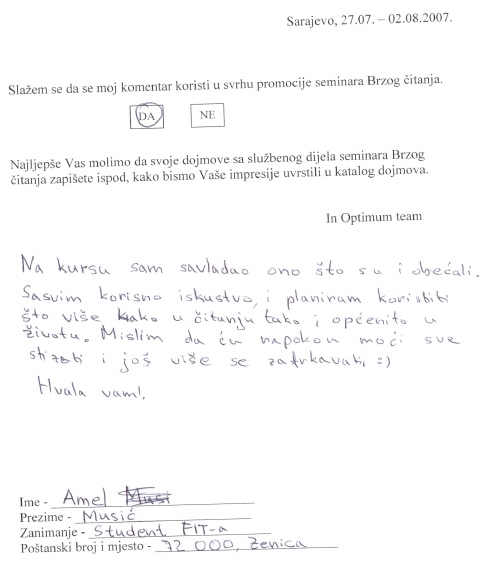 Sarajevo, 27.07. – 02.08.2007.
Slažem se da se moj komentar koristi u svrhu promocije seminara Brzog čitanja.
DA NE
Najljepše Vas molimo da svoje dojmove sa službenog dijela seminara Brzog
čitanja zapišete ispod, kako bismo Vaše impresije uvrstili u katalog dojmova.
In Optimum team
Na kursu sam savladao ono što su i obećali.
Sasvim korisno iskustvo, i planiram koristiti
što više kako u čitanju tako i općenito u
životu. Mislim da ću napokon moći sve
stizati i još više se zafrkavati, :)
Hvala vam!
Ime - Amel Musi
Prezime - Musić
Zanimanje - Student FIT-a
Poštanski broj i mjesto - 72 000, Zenica